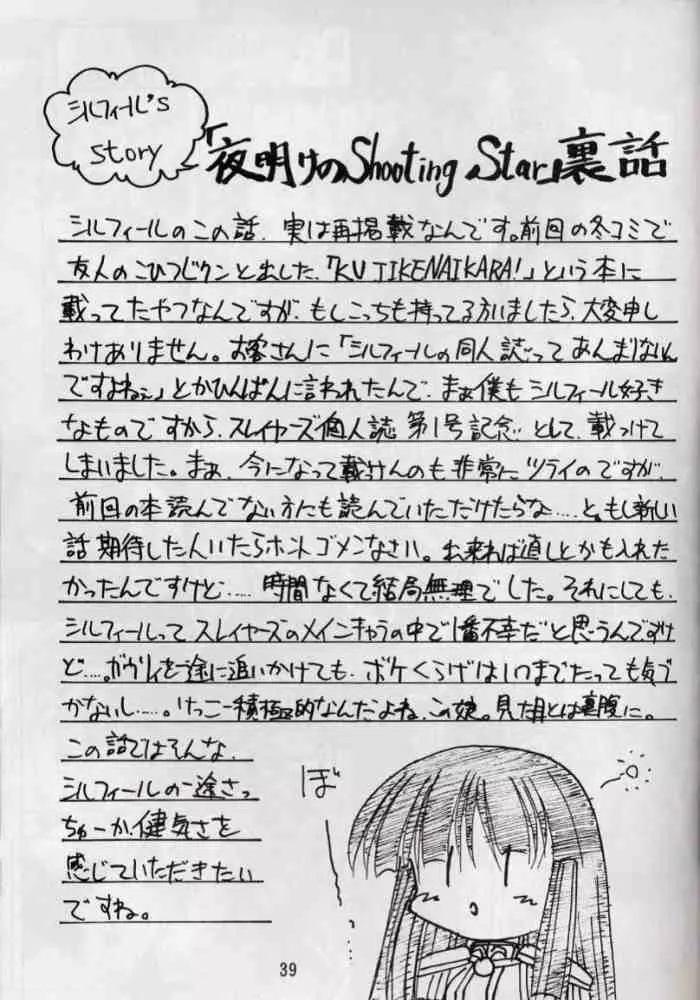 シルフィール's
story
「夜明けのShooting Star」裏話
シルフィールのこの話、実は再掲載なんです。前回の冬コミで
友人のこひつじクンと出した、「KUJIKENAIKARA!」という本に
載ってたやつなんですが、もしこっちも持ってる方いましたら、大変申し
わけありません。お客さんに「シルフィールの同人誌ってあんまりないん
ですよねぇ」とかひんぱんに言われたんで、まぁ僕もシルフィール好き
なものですから、スレイヤーズ個人誌第1号記念として、載っけて
しまいました。まぁ、今になって載けんのも非常にツライのですが、
前回の本読んでない方にも読んでいただけたらな……と。もし新しい
話期待した人いたらホントゴメンなさい。出来れば直しとかも入れた
かったんですけど……時間なくて結局無理でした。それにしても、
シルフィールってスレイヤーズのメインキャラの中で1番不幸だと思うんですけ
ど……。ガウリイを一途に追いかけても、ボケくらげはいつまでたっても気づ
かないし……。けっこー積極的なんだよね、この娘。見た目とは裏腹に。
この話ではそんな、
シルフィールの一途さっ
ちゅーか、健気さを
感じていただきたい
ですね。
ぼ
39